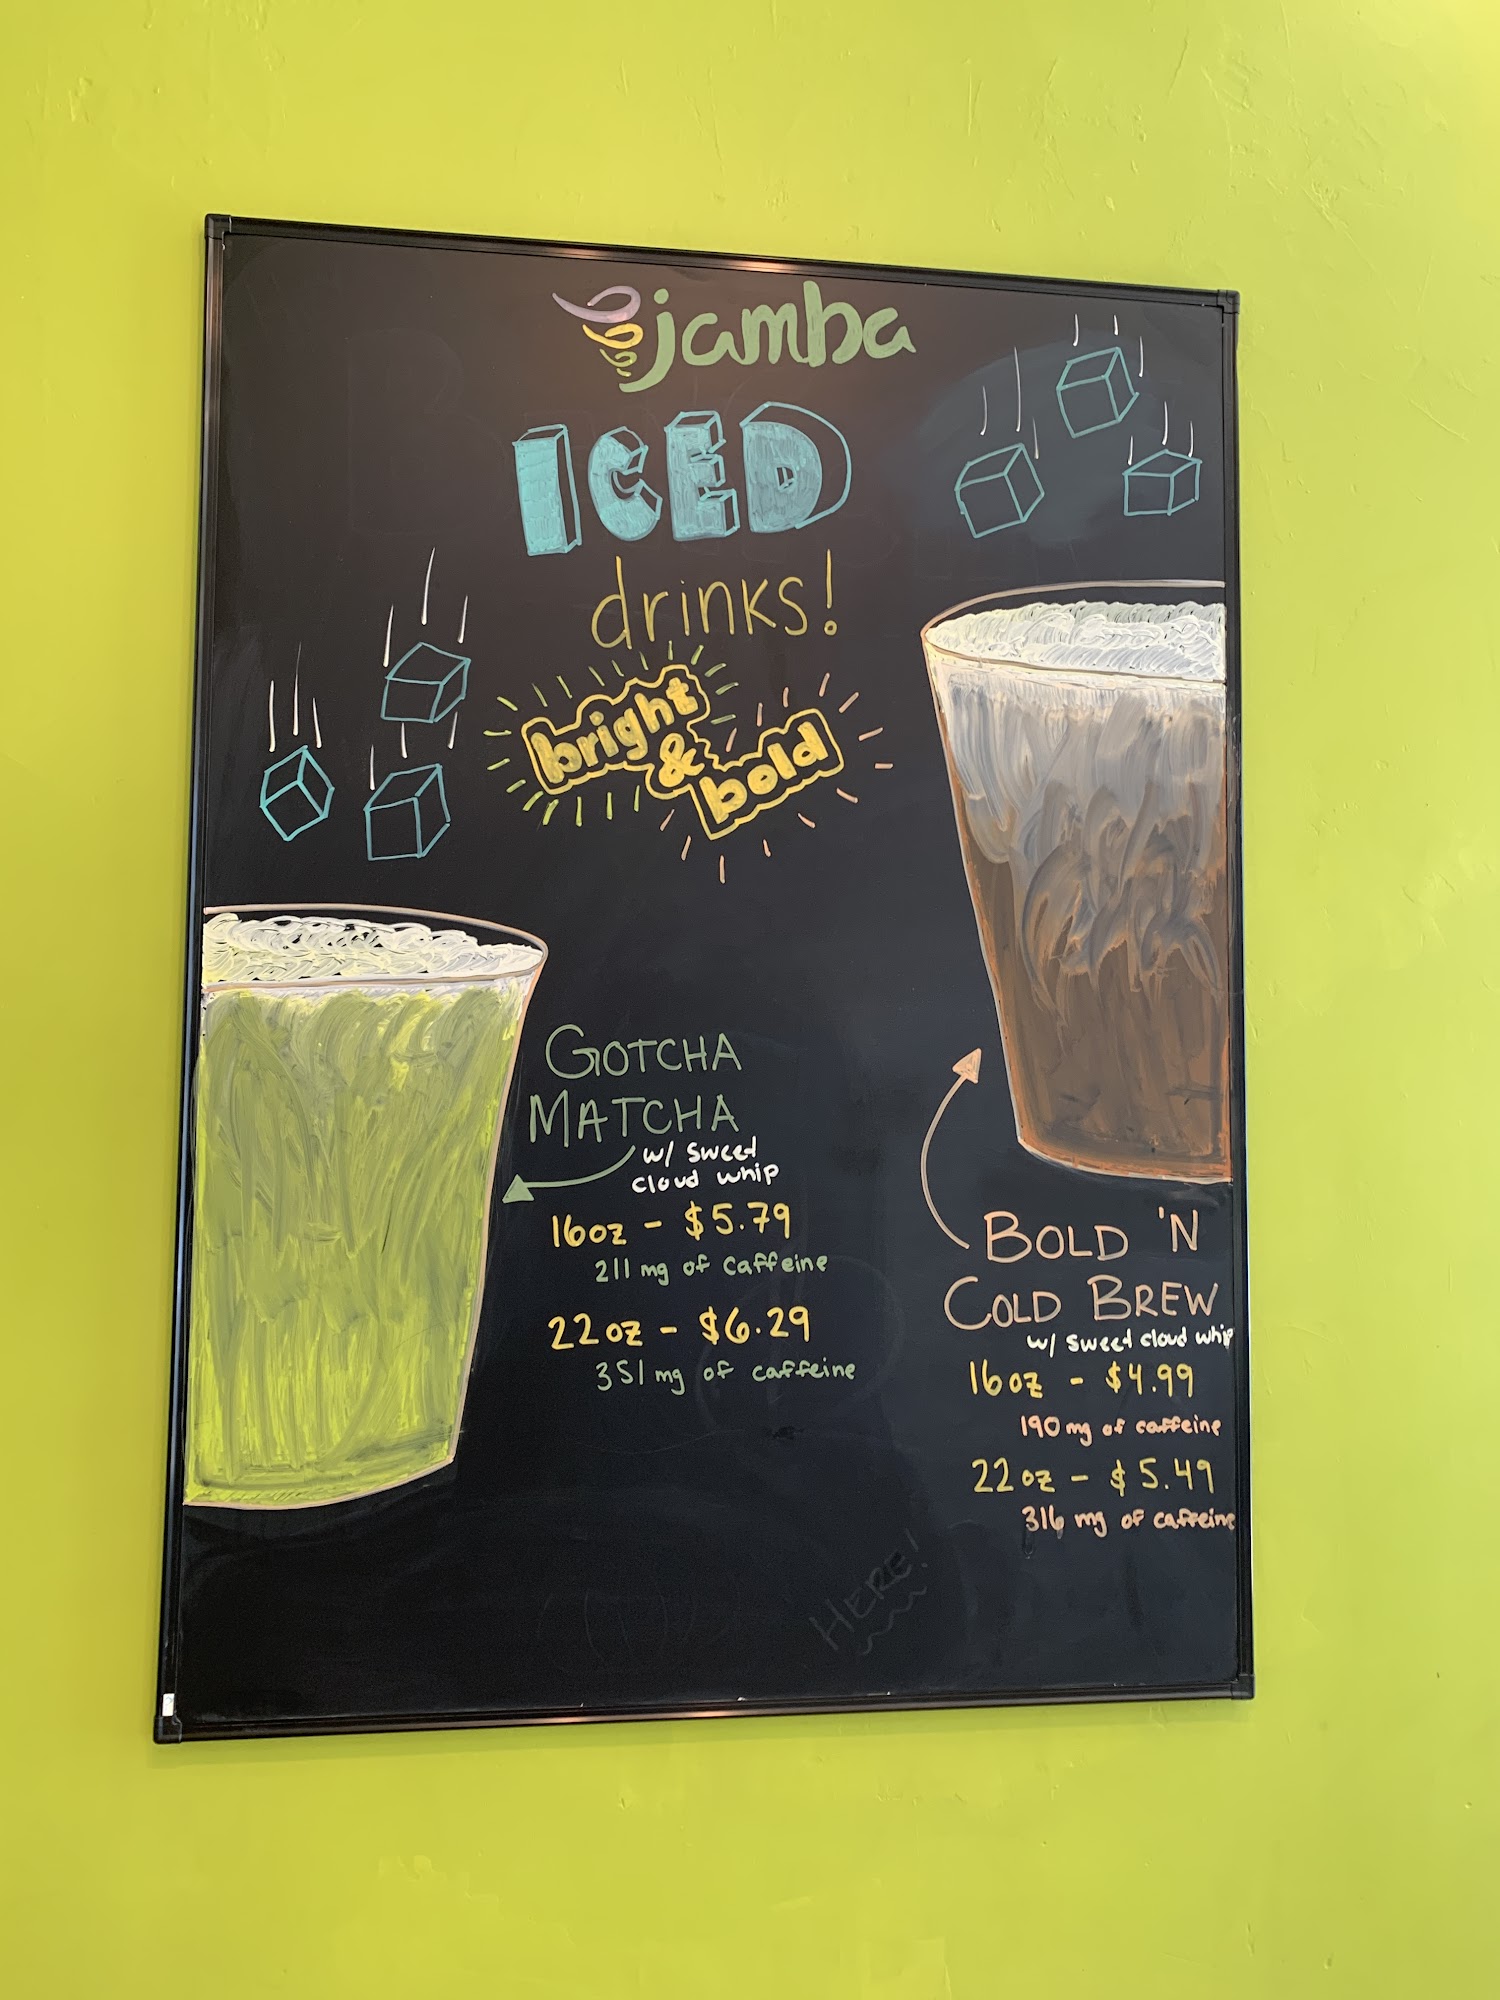 jamba
ICED
drinks!
bright
&
bold
GOTCHA
MATCHA
w/ sweet
cloud whip
16oz - $5.79
211 mg of caffeine
22oz - $6.29
351 mg of caffeine
BOLD 'N
COLD BREW
w/ sweet cloud whip
16oz - $4.99
190 mg of caffeine
22oz - $5.49
316 mg of caffeine
HERE!